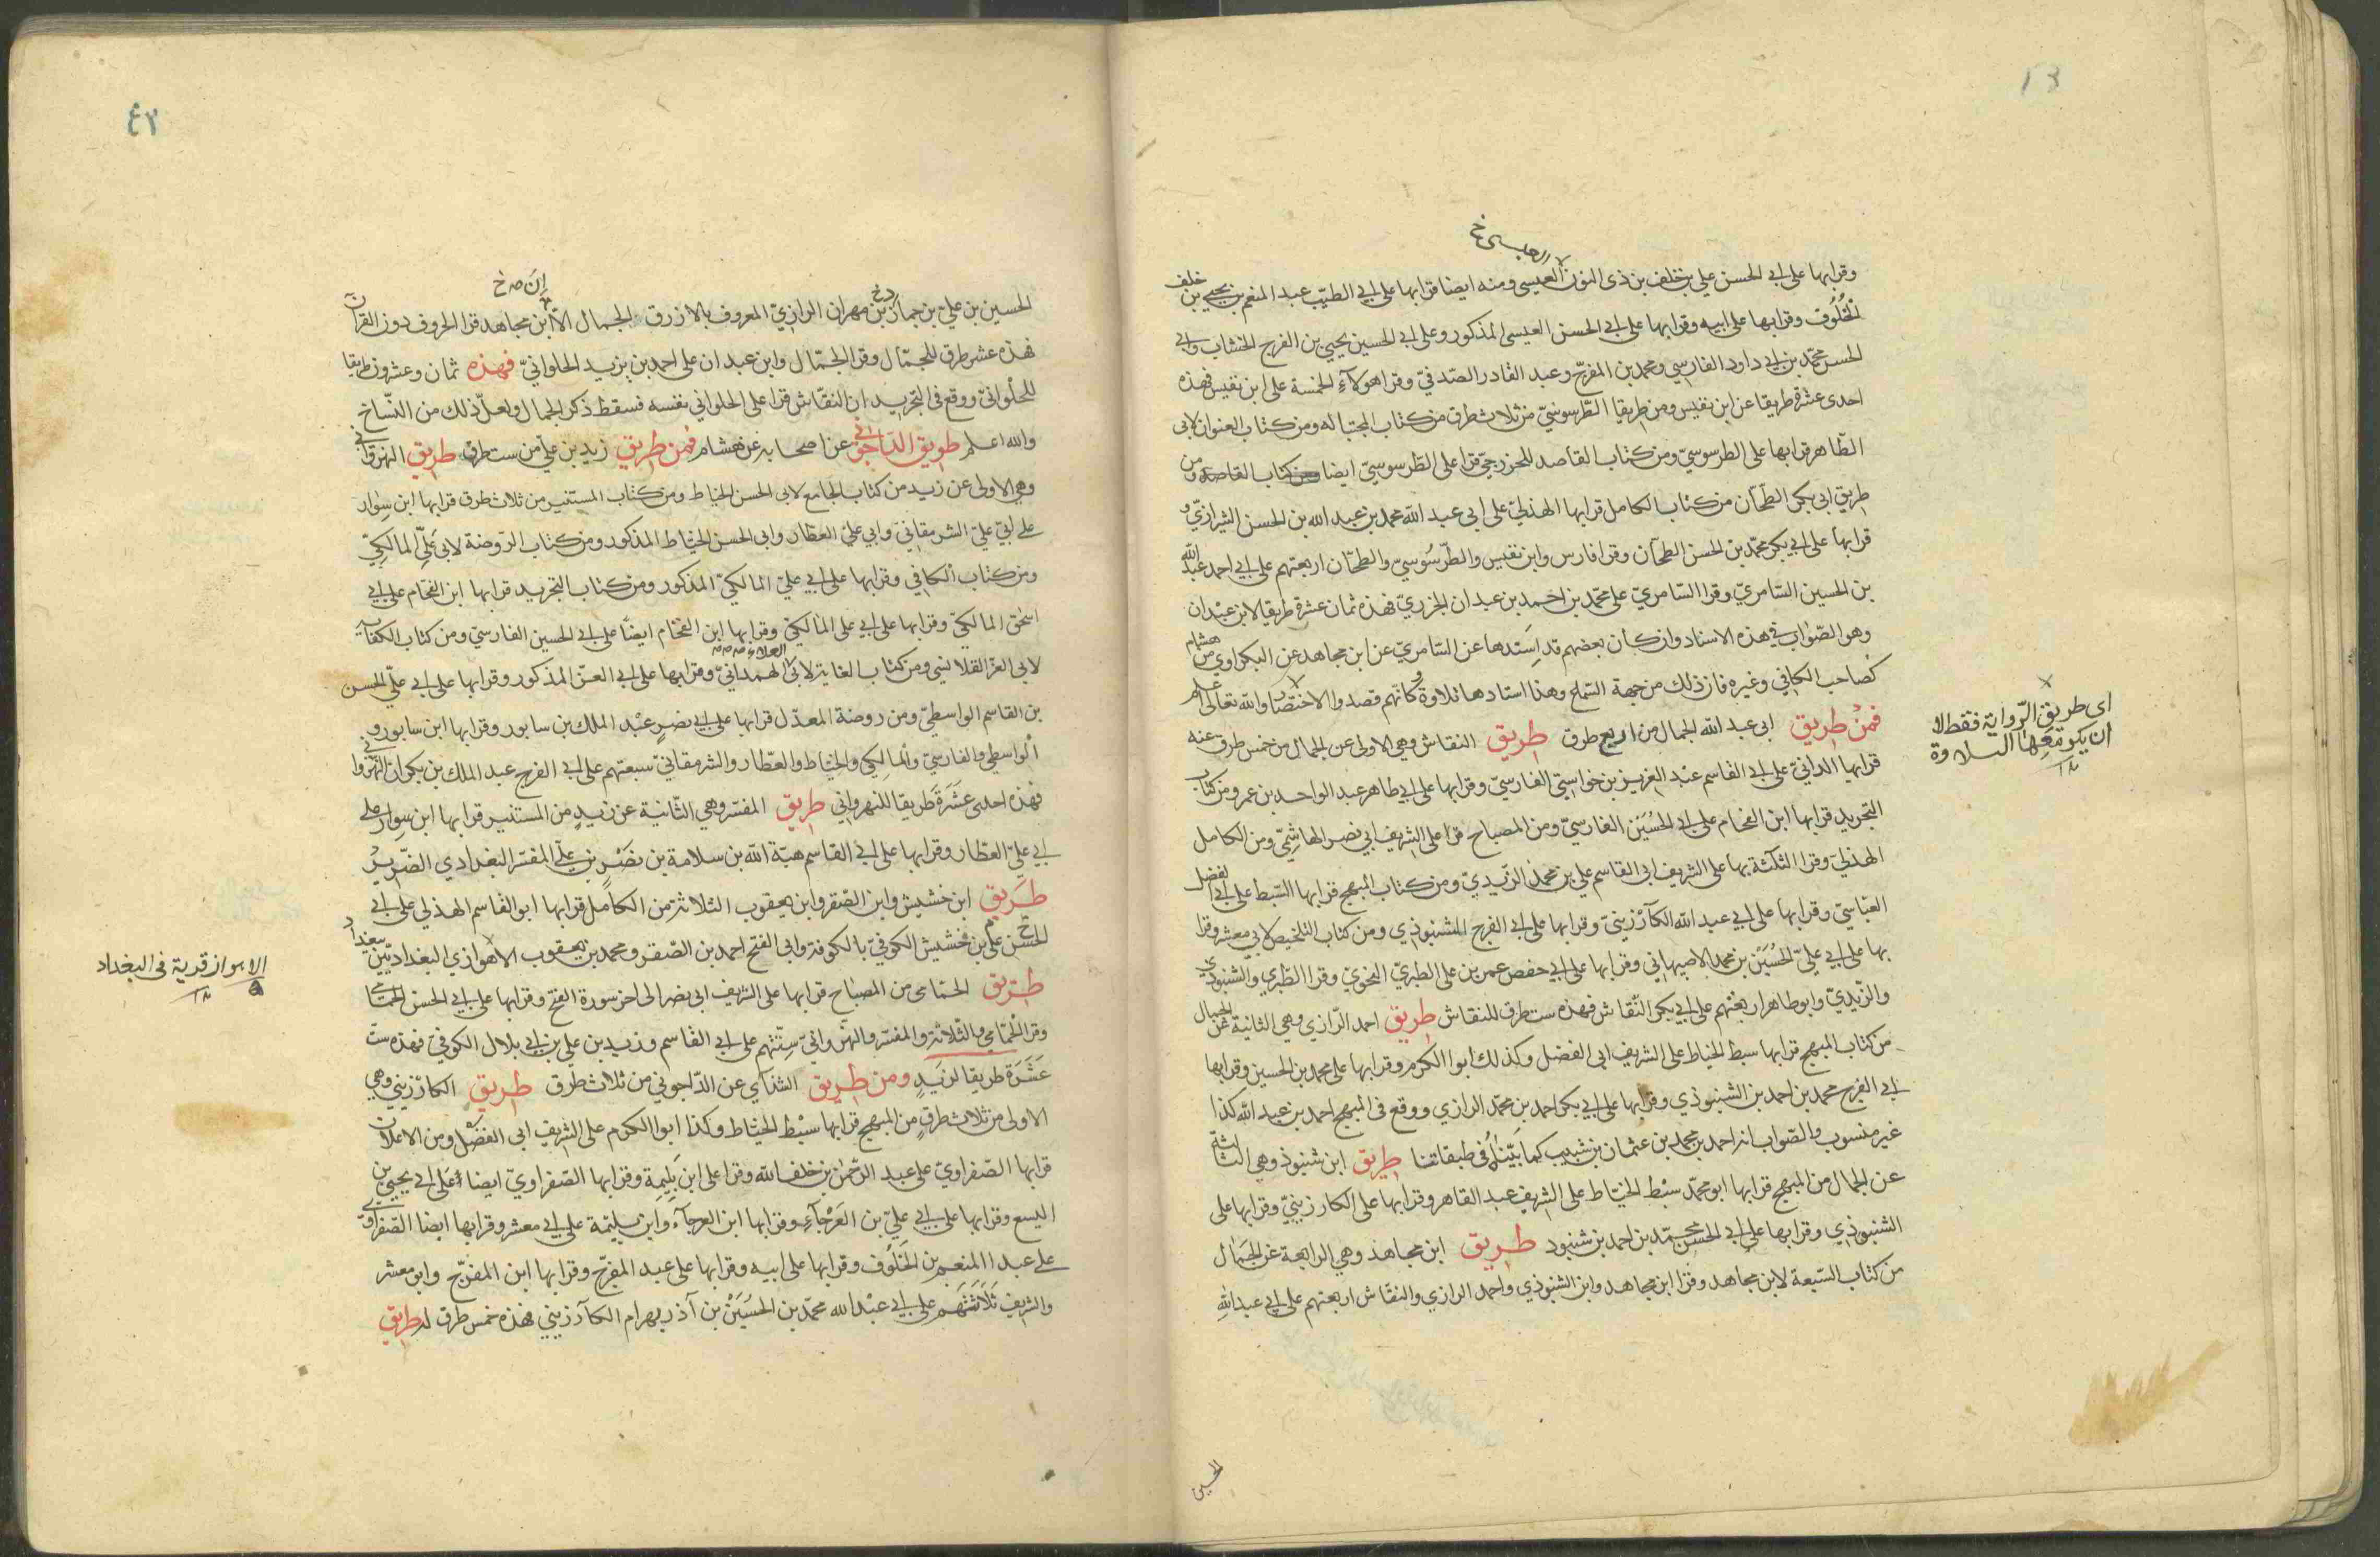 13
العبسى خ
وقرا بها على ابي الحسن علي بن خلف بن ذى النون العبسى ومنه ايضا قرا بها على ابي الطيّب عبد المنعم بن يحيى بن خلف
الخُلُوف وقرا بها على ابيه وقرا بها على ابي الحسن العبسى المذكور وعلى ابي الحسين يحيى بن الفرج الخشاب وابي
الحسن محمّد بن ابي داود الفارسي ومحمد بن المفرّج وعبد القادر الصّدفيّ وقرا هولآءِ الخمسة على ابن نفيس فهذه
احدى عشرة طريقا عن ابن نفيس ومن طريقا الطّرسوسيّ من ثلاث طرق من كتاب المجتبا له ومن كتاب العنوان لابى
الطّاهر قرا بها على الطرسوسيّ ومن كتاب القاصد للخزرجيّ قرا على الطّرسوسيّ ايضا من كتاب القاصد ومن
طريق ابى بكر الطّحّان من كتاب الكامل قرا بها الهذليّ على ابى عبد الله محمد بن عبد الله بن الحسن الشيرازيّ و
قرا بها على ابي بكر محمّد بن الحسن الطحّان وقرا فارس وابن نفيس والطّرسُوسيّ والطحّان اربعتهم على ابي احمد عبد الله
بن الحسين السّامريّ وقرا السّامريّ على محمّد بن احمد بن عبدان الجزريّ فهذه ثمان عشرة طريقا لابن عبدان
وهو الصّواب في هذه الاسناد وان كان بعضهم قد اسندها عن السّامريّ عن ابن مجاهد عن البكراوي من هشام
كصاحب الكافي وغيره فان ذلك من جهة السّماع وهذا اسنادها تلاوة وكانّهم قصدوا الاختصار والله تعالى اعلم
فمنْ طريق ابى عبد الله الجمال من اربع طرق طريق النقاش وهي الاولى عن الجمال من خمس طرق عنه
قرا بها الدانيّ على ابي القاسم عبْد العزيز بن خواستي الفارسيّ وقرا بها على ابي طاهر عبد الواحد بن عمر ومن كتاب
التجريد قرا بها ابن الفحام على ابي الحسُيَن الفارسيّ ومن المصباح قرا على الشريف ابي نصر الهاشميّ ومن الكامل
الهذليّ وقرا الثلثة بها على الشريف ابى القاسم علي بن محمد الزّيديّ ومن كتاب المبهج قرا بها السّبط على ابي الفضل
العبّاسيّ وقرا بها على ابي عبد الله الكارْزينيّ وقرا بها على ابي الفرج الشنبوذي ومن كتاب التلخيص لابي معشر وقرا
بها على ابي عليّ الحُسَيْن بن محمد الاصبهاني وقرا بها على ابي حفص عمر بن على الطبريّ النحويّ وقرا الطّبري والشنبوذي
والزّيديّ وابو طاهر اربعتهم على ابي بكر النّقاش فهذه ست طرق للنقاش طريق احمد الرّازي وهي الثانية عن الجمال
من كتاب المبهج قرا بها سبط الخياط على الشريف ابى الفضل وكذلك ابو الكرم وقرا بها على محمد بن الحسين وقرا بها
ابي الفرج محمد بن احمد بن الشنبوذي وقرا بها على ابي بكر احمد بن محمّد الرازي ووقع فى المبهج احمد بن عبد الله كذا
غير منسوب والصّواب انه احمد بن محمد بن عثمان بن شبيب كما بيّنّاهُ فى طبقاتنا طريق ابن شنبوذ وهي الثالثة
عن الجمال من المبهج قرا بها ابو محمّد سبْط الخيّاط على الشريف عبد القاهر وقرا بها على الكارزينيّ وقرا بها على
الشنبوذي وقرا بها على ابي الحسن محمّد بن احمد بن شنبوذ طريق ابن مجاهد وهي الرابعة عن الجمال
من كتاب السّبعة لابن مجاهد وقرا ابن مجاهد وابن الشنبوذي واحمد الرازي والنقّاش اربعتهم على ابي عبد الله
اى طريق الرّواية فقط لا
ان يكو معها التلاوة
الحسين
٤٢
اِنّ ص خ
الحسين بن عليّ بن جماز بن مهران الرازيّ المعروف بالازرق الجمال الّا ابن مجاهد قرا الحروف دون القرآن
فهذه عشر طرق للجمّال وقرا الجمّال وابن عبدان على احمد بن يزيد الحلوانيّ فهذه ثمان وعشرون طريقا
للحلوانيّ ووقع فى التجريد ان النقّاش قرا على الحلواني نفسه فسقط ذكر الجمال ولعلّ ذلك من النسّاخ
والله اعلم طريق الدّاجونى عن اصحابه عن هشام فمن طريق زيد بن عليّ من ست طرق طريق النهروانى
وهي الاولى عن زيد من كتاب الجامع لابى الحسن الخياط ومن كتاب المستنير من ثلاث طرق قرا بها ابن سوار
على ابي عليّ الشرمقانيّ وابي عليّ العطّار وابى الحسن الخيّاط المذكور ومن كتاب الرّوضة لابى عَلّي المالكيّ
ومن كتاب الكافي وقرا بها على ابي عليّ المالكيّ المذكور ومن كتاب التجريد قرا بها ابن الفحّام على ابي
اسحٰق المالكيّ وقرا بها على ابي على المالكيّ وقرا بها ابن الفحّام ايضًا على ابي الحسين الفارسيّ ومن كتاب الكفاية
لابي العزّ القلانسي ومن كتاب الغاية لابى العلاء الهمدانيّ وقرا بها على ابي العزّ المذكور وقرا بها على ابى عليّ الحسن
بن القاسم الواسطيّ ومن روضة المعدّل قرا بها على ابي نصر عبْد الملك بن سابور وقرا بها ابن سابور و
الواسطي والفارسيّ والمالكي والخيّاط والعطّار والشرمقانيّ سبعتهم على ابي الفرج عبد الملك بن بكران النّهروانى
فهذه احدى عَشَرَةَ طريقا للنهرواني طريق المفسّر وهي الثّانية عن زيدٍ من المستنير قرا بها ابن سوار على
ابي عليّ العطّار وقرا بها على ابي القاسم هبة الله بن سلامة بن نصْر بن علّي المفسّر البغدادي الضّريرُ
طريق ابن خشيش وابن الصّقر وابن يعقوب الثلاثة من الكامل قرا بها ابو القاسم الهذلي على ابي
الحسن علّي بن خشيش الكوفيّ بالكوفة وابى الفتح احمد بن الصّقر ومحمد بن يعقوب الاهوازي البغداديّين ببغداد
طريق الحمّامى من المصباح قرا بها على الشريف ابى نصر الى اخر سورة الفتح وقرا بها على ابي الحسن الحمّامى
وقرا الحمّامي والثلاثة والمفسّر والنّهرواني سِتّتهم على ابي القاسم وزيد بن علي بن ابي بلال الكوفيّ فهذه ستّ
عَشَرَة طريقا لزيد ومن طريق الشذآي عن الدّاجوني من ثلاث طرق طريق الكارْزيني وهي
الاولى من ثلاث طرقٍ من المبهج قرا بها سبْط الخيّاط وكذا ابو الكرم على الشريف ابى الفضْل ومن الاعلان
قرا بها الصّفراويّ على عبد الرّحمٰن بن خلف الله وقرا على ابن بَلِيمة وقرا بها الصّفراويّ ايضا على ابي يحيى بن
اليسع وقرا بها على ابي عليّ بن العَرْجآءِ وقرا بها ابن العرجآء وابن بليمة على ابي معشر وقرا بها ايضا الصّفراويّ
على عبد المنعم بن الخَلُوف وقرا بها على ابيه وقرا بها على عبد المفرّج وقرا بها ابن المفرّج وابو معشر
والشريف ثلَاثَتُهُم على ابي عبْد الله محمّد بن الحسَيَنْ بن آذر بهرام الكارزيني فهذه خمس طرق له طريق
الاهواز قرية فى البغداد